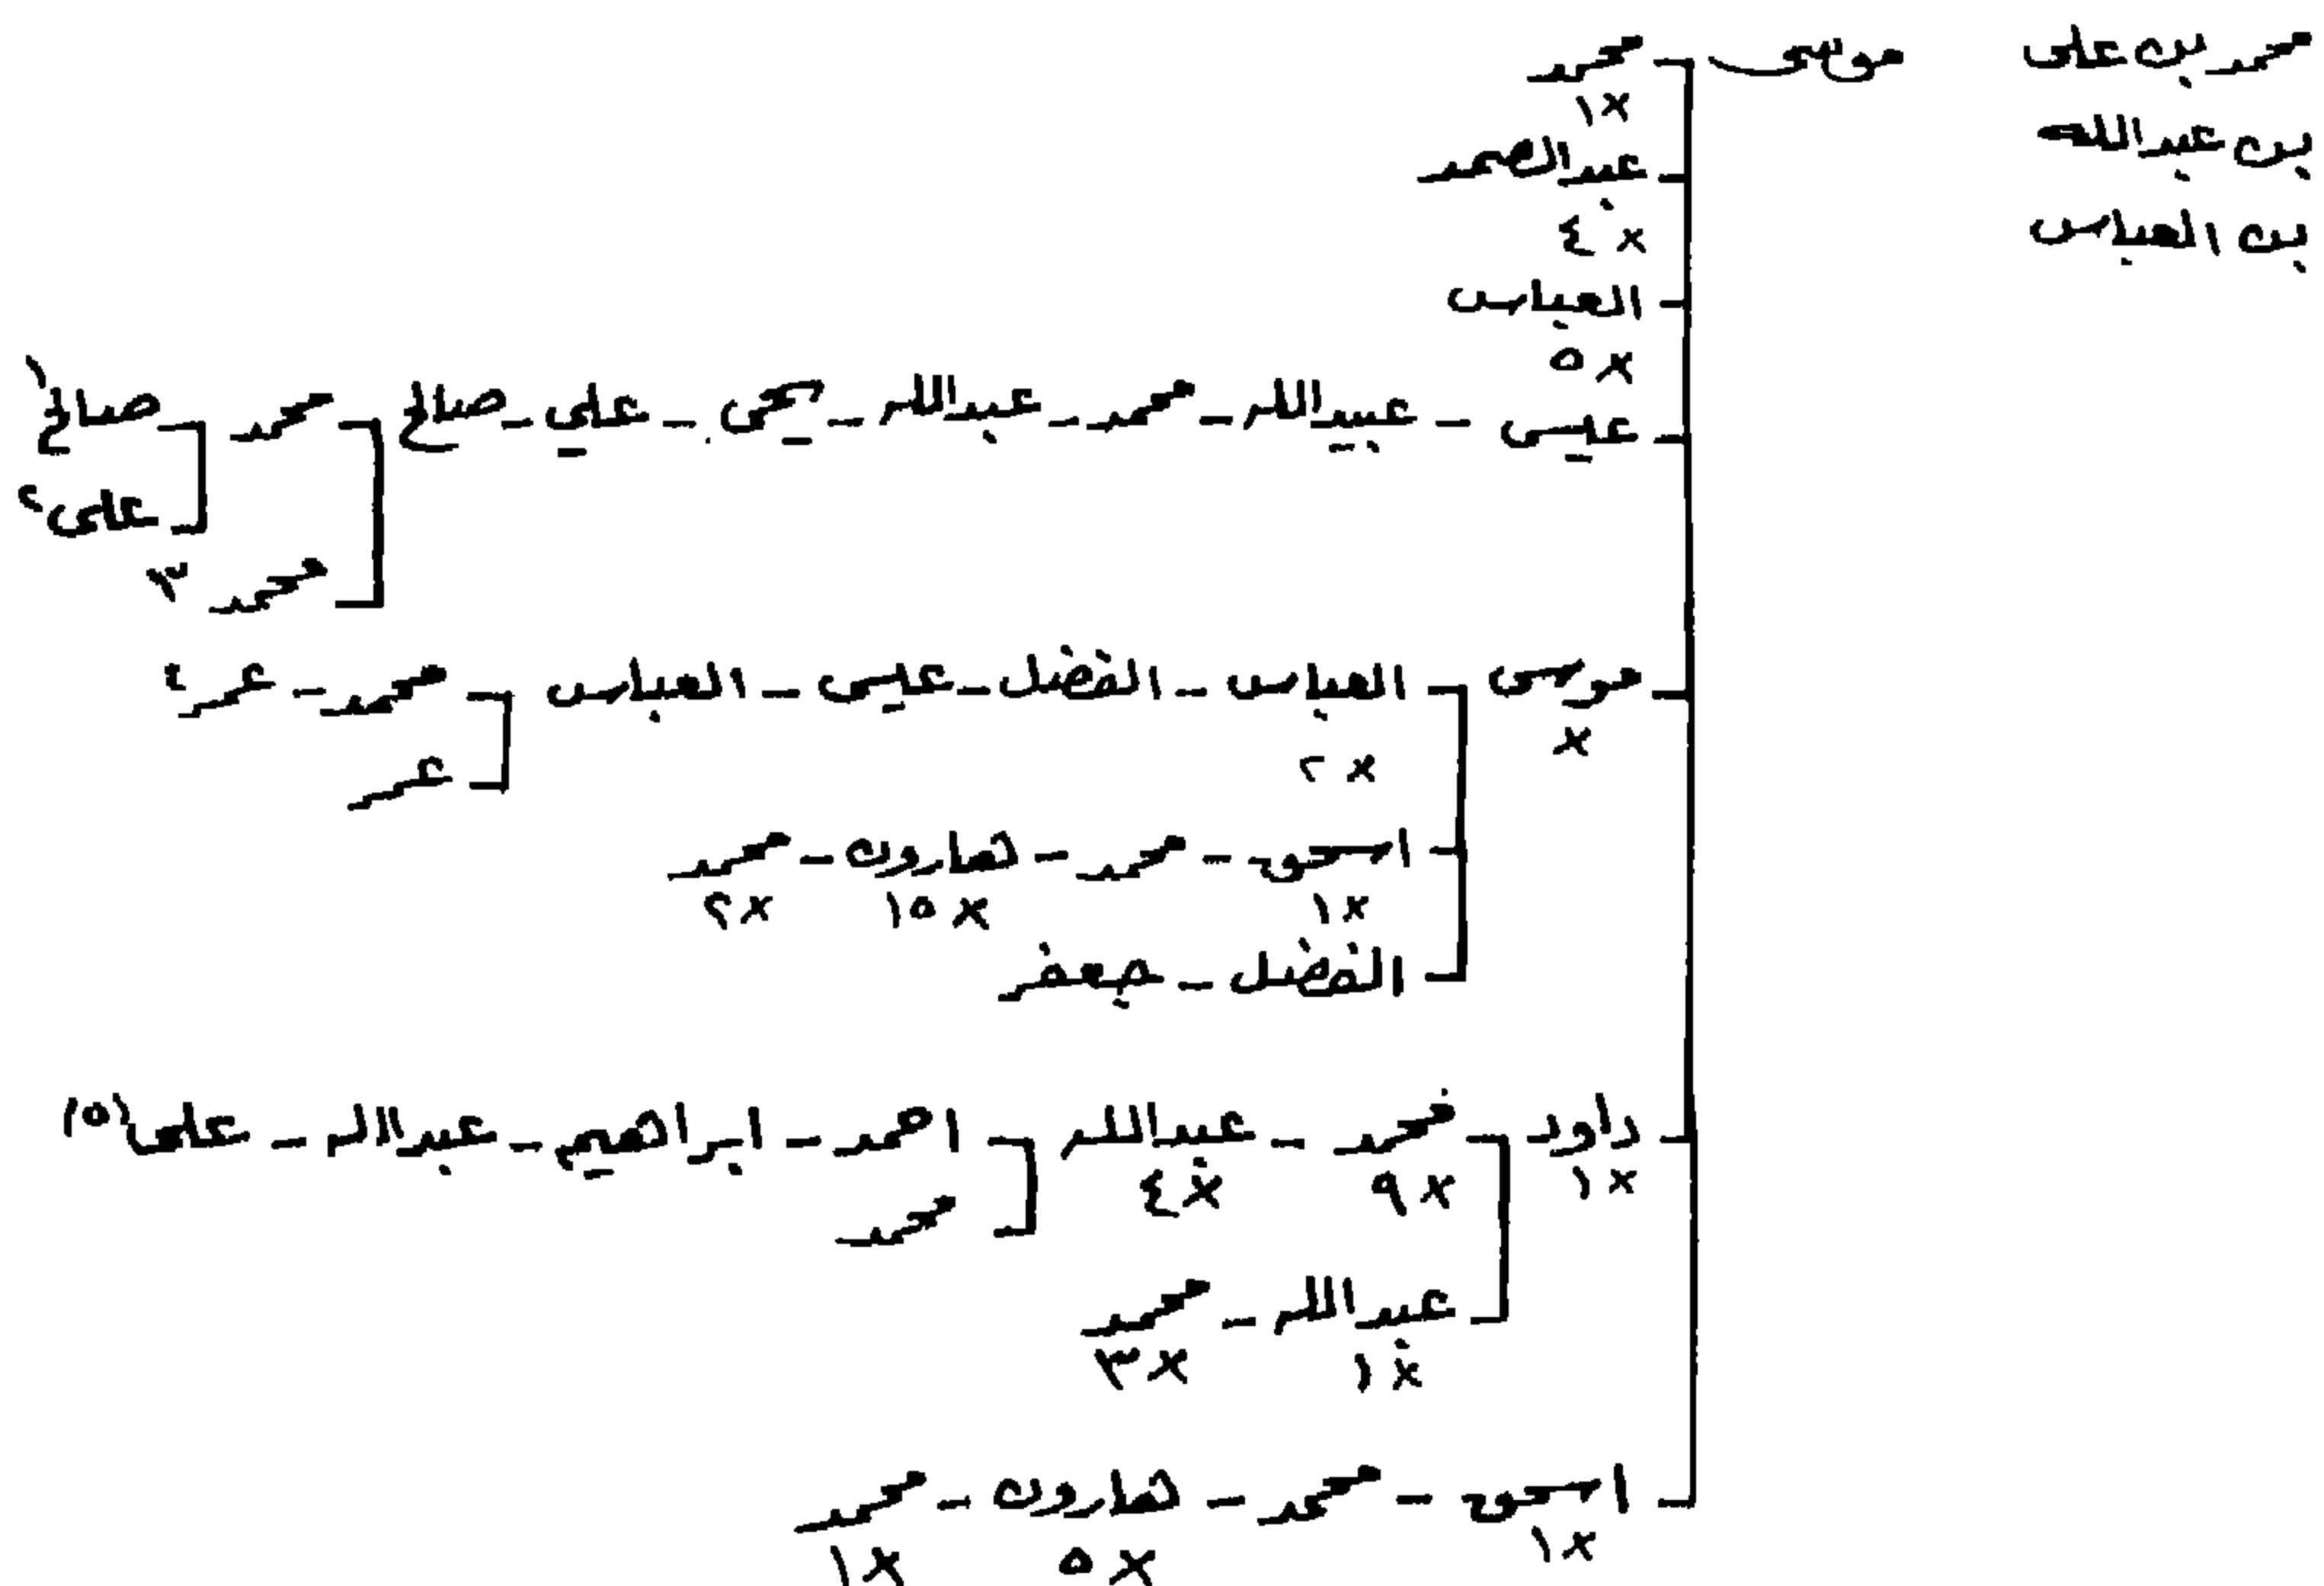 محمد بن على
بن عبدالله
بن العباس
موسى - محمد
×١
عبدالصمد
×٤
العباس
×٥
عيسى - عبيدالله - محمد - عبدالله - يحيى - علي - صالح - محمد - صالح ١
على ٢
محمد ٣
موسى - العباس - الفضل - عيسى - العباس - محمد - عمر ٤
×
×٢
عمر
اسحق - محمد - هارون - محمد
×١ ×١٥ ×٢
الفضل - جعفر
داود - محمد - عبدالله - احمد - ابراهيم - عبدالله - على (٥)
×١ ×٩ ×٤
محمد
عبدالله - محمد
×١ ×٣
اسحق - محمد - هارون - محمد
×١ ×٥ ×١